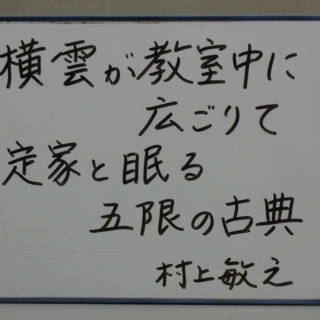 横雲が教室中に
広ごりて
定家と眠る
五限の古典
村上敏之